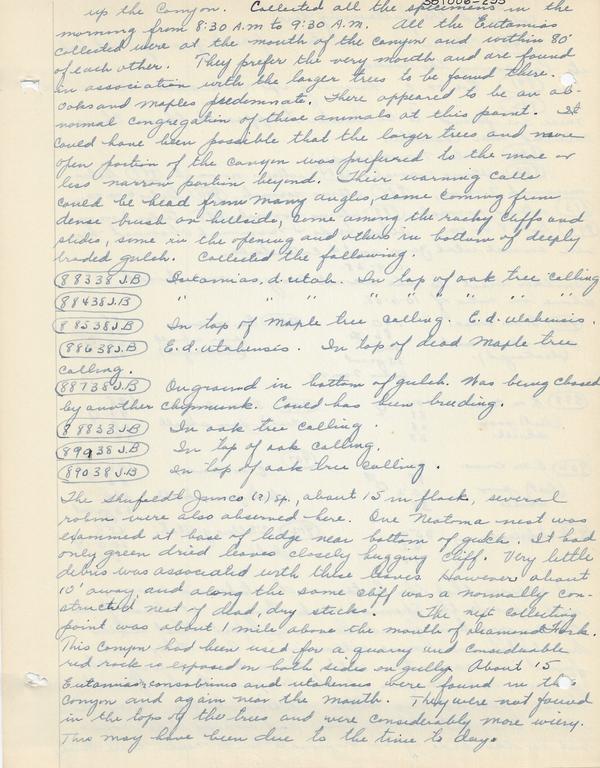 up the Canyon. Collected all the specimens in the
morning from 8:30 A.M to 9:30 A.M. All the Eutamias
collected were at the mouth of the canyon and within 80'
of each other. They prefer the very mouth and are found
in association with the larger trees to be found there.
Oaks and maples predominate. There appeared to be an ab-
normal congregation of these animals at this point. It
could have been possible that the larger trees and more
open portion of the canyon was preferred to the more or
less narrow portion beyond. Their warning calls
could be head from many angles, some coming from
dense brush on hillside, some among the rocky cliffs and
slides, some in the opening and others in bottom of deeply
eroded gulch. Collected the following.
88338 J.B Eutamias, d. utah. In top of oak tree calling
88438 J.B " " " " " " " "
88538 J.B In top of maple tree calling. E.d. utahensis.
88638 J.B E.d. utahensis. In top of dead maple tree
calling.
88738 J.B On ground in bottom of gulch. Was being chased
by another chipmunk. Could has been breeding.
88833 J.B In oak tree calling.
89938 J.B In top of oak calling.
89038 J.B In top of oak tree calling.
The Shufeldt Junco (?) sp., about 15 in flock, several
robin were also observed here. One Neotoma nest was
examined at base of ledge near bottom of gulch. It had
only green dried leaves closely hugging cliff. Very little
debris was associated with these leaves. However about
10' away, and along the same cliff was a normally con-
structed nest of dead, dry sticks. The next collecting
point was about 1 mile above the mouth of Diamond Fork.
This canyon had been used for a quarry and considerable
red rock is exposed on both sides on gully. About 15
Eutamias consobrinus and utahensis were found in this
Canyon and again near the mouth. They were not found
in the tops of the trees and were considerably more wiery.
This may have been due to the time to day.